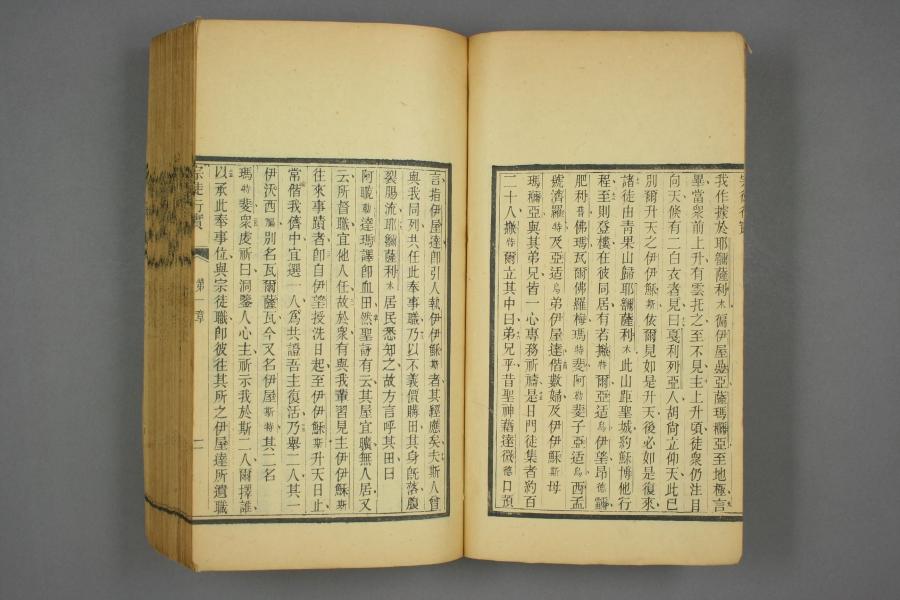 我作據於耶𬒮薩利木𬒮伊屋疊亞薩瑪𬒮亞至地極言
畢當衆前上升有雲托之至不見主上升頃徒衆仍注目
向天倐有二白衣者見曰戛利列亞人胡尙立仰天此已
別爾升天之伊伊穌斯依爾見如是升天後必如是復來
諸徒由靑果山歸耶𬒮薩利木此山距聖城約穌博他行
程至則登樓在彼同居有若揻特爾亞适烏伊望昂德
肥利昔佛瑪瓦爾佛羅梅瑪特斐阿勒斐子亞适烏西孟
號濟羅特及亞适烏弟伊屋達偕數婦及伊伊穌斯母
瑪𬒮亞與其弟兄皆一心專務祈禱是日門徒集者約百
二十人撇特爾立其中曰弟兄乎昔聖神藉達微德口預
言指伊屋達卽引人執伊伊穌斯者其經應矣夫斯人曾
與我同列共任此奉事職乃以不義價購田其身旣落腹
裂腸流耶𬒮薩利木居民悉知之故方言呼其田曰
阿䁥勒達瑪譯卽血田然聖詠有云其屋宜曠無人居又
云所督職宜他人任故於衆有與我輩習見主伊伊穌斯
往來事蹟者卽自伊望授洗日起至伊伊穌斯升天日止
常偕我儕中宜選一人爲共證吾主復活乃舉二人其一
伊沃西福別名瓦爾薩瓦今又名伊屋斯特其二名
瑪特斐衆虔祈曰洞鑒人心主祈示我於斯二人爾擇誰
以承此奉事位與宗徒職卽彼往其所之伊屋達所遺職
宗徒行實
第一章
二